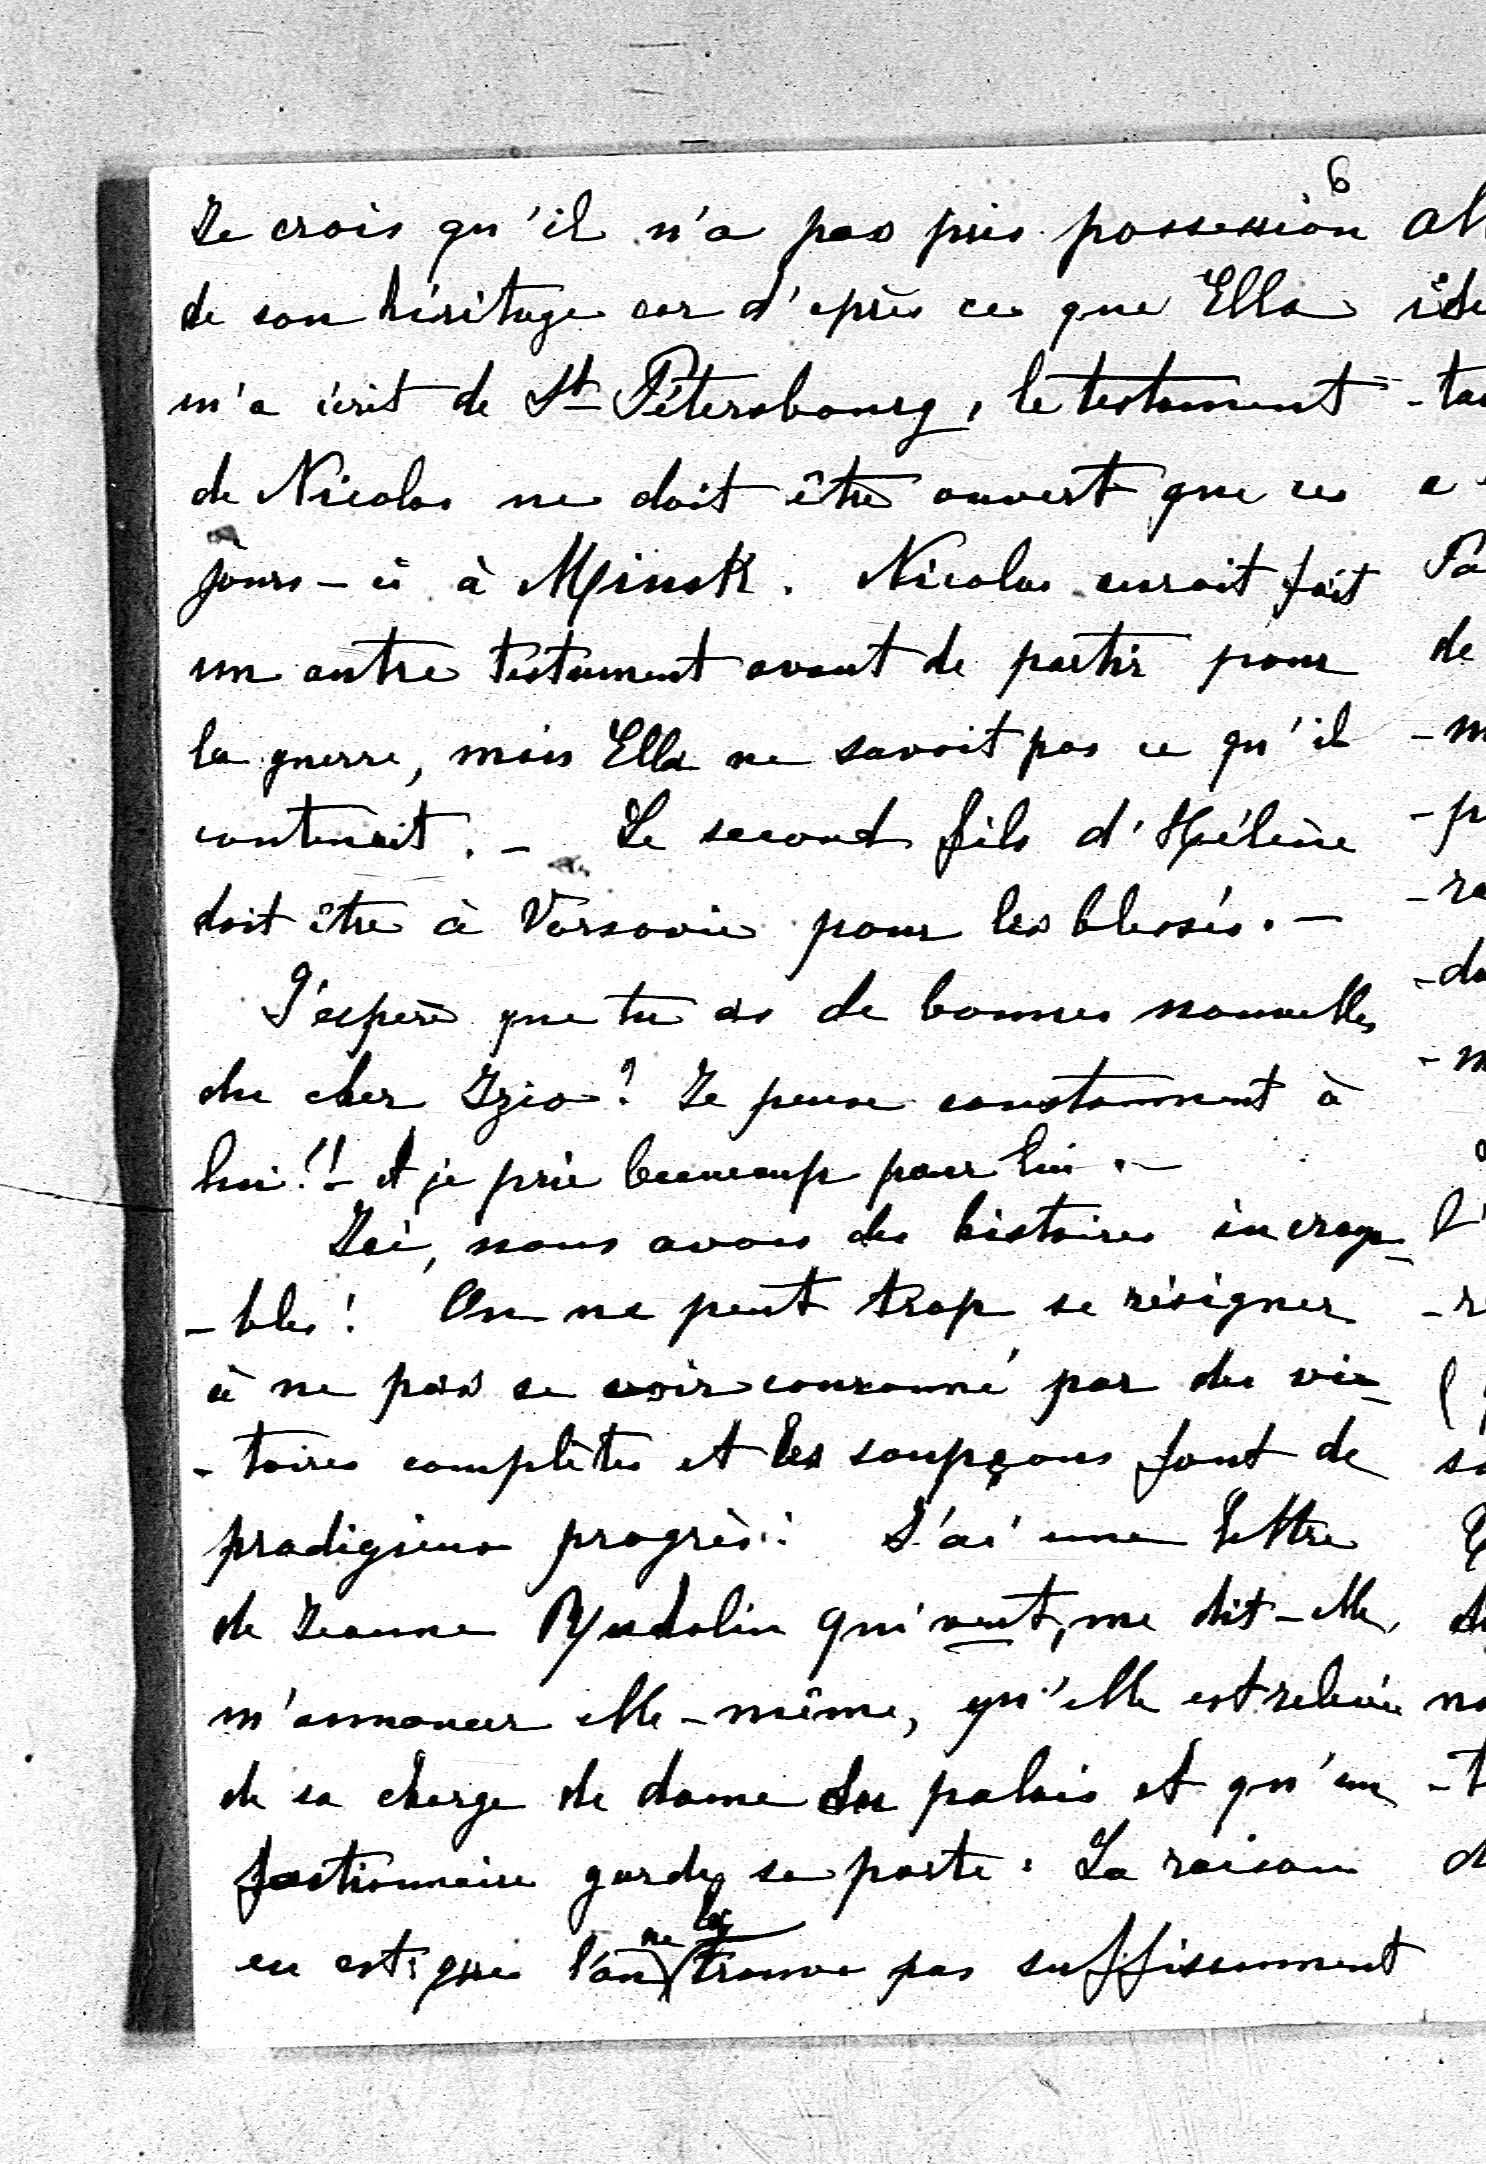 6
Je crois qu'il n'a pas pris possession
de son héritage car d'après ce que Ella
m'a écrit de St Pétersbourg, le testament
de Nicolas ne doit être ouvert que ces
jours-ci à Minsk. Nicolas aurait fait
un autre testament avant de partir pour
la guerre, mais Ella ne savait pas ce qu'il
contenait. - Le second fils d'Hélène
doit être à Varsovie pour les blessés. -
J'espère que tu as de bonnes nouvelles
du cher Izio? Je pense constamment à
lui!! - et je prie beaucoup pour lui. -
Ici, nous avons des histoires incroya-
-bles! On ne peut trop se résigner
à ne pas se voir couronné par des vic-
-toires complètes et les soupçons font de
prodigieux progrès: J'ai une lettre
de Jeanne qui veut, me dit-elle,
m'annoncer elle-même, qu'elle est relevée
de sa charge de dame du palais et qu'un
factionnaire garde sa porte. La raison
en est que l'on ne la trouve pas suffisamment